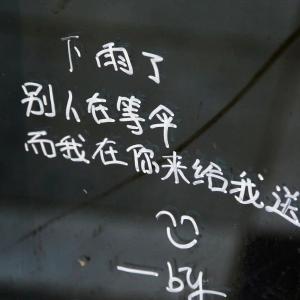 下雨了
别人在等伞
而我在你来给我送
—by